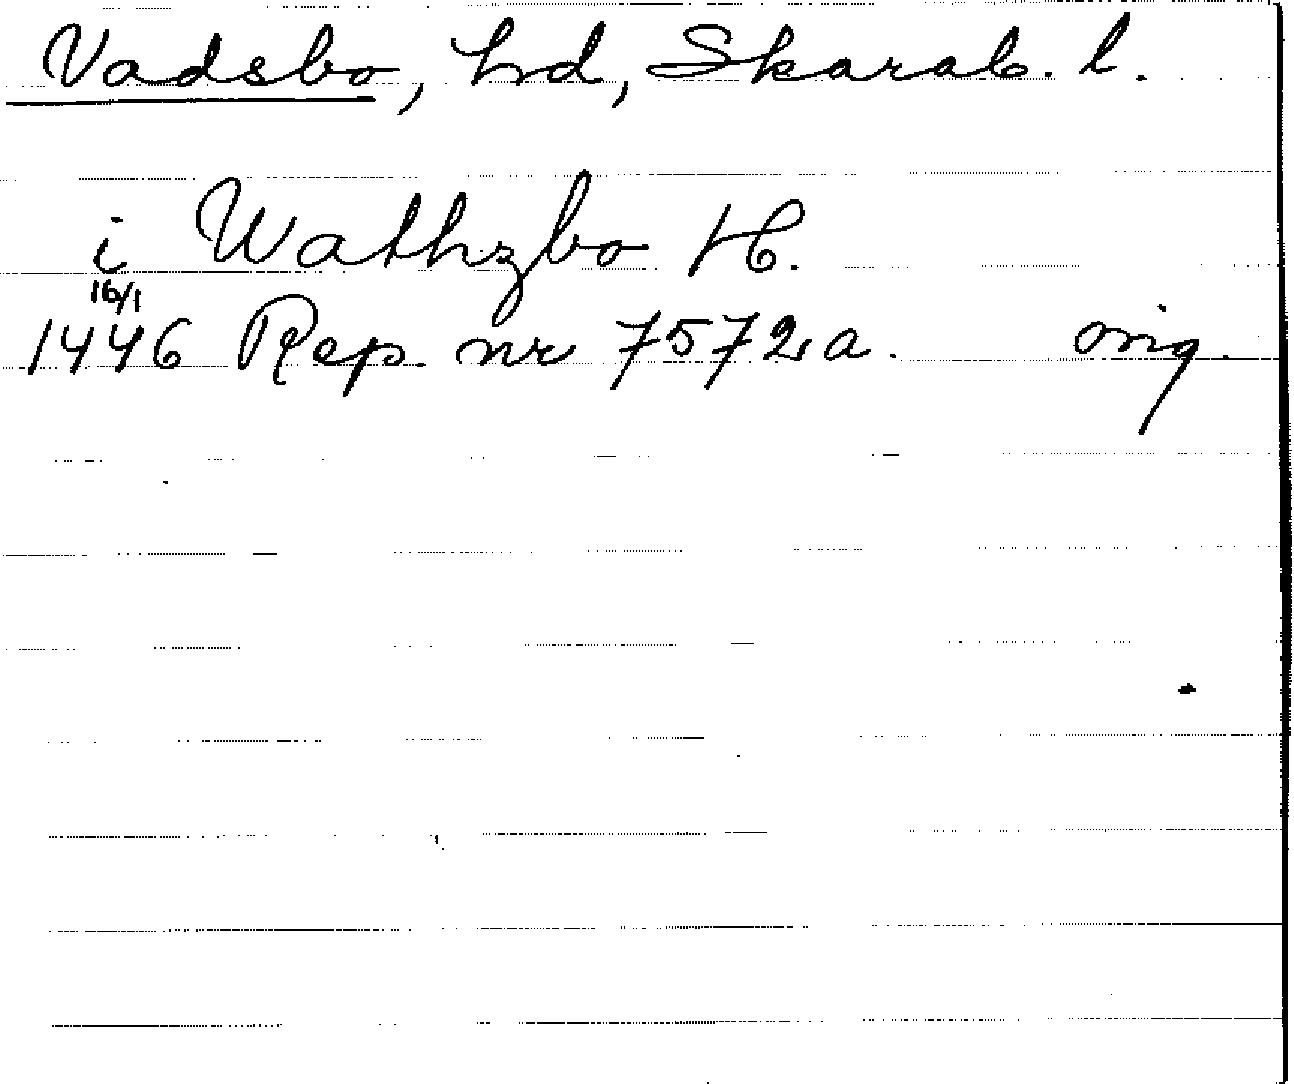 Vadsbo, hd, Skarab. l.
i Wathzbo H.
16/1
1446 Rep. nr 7572 a. orig.